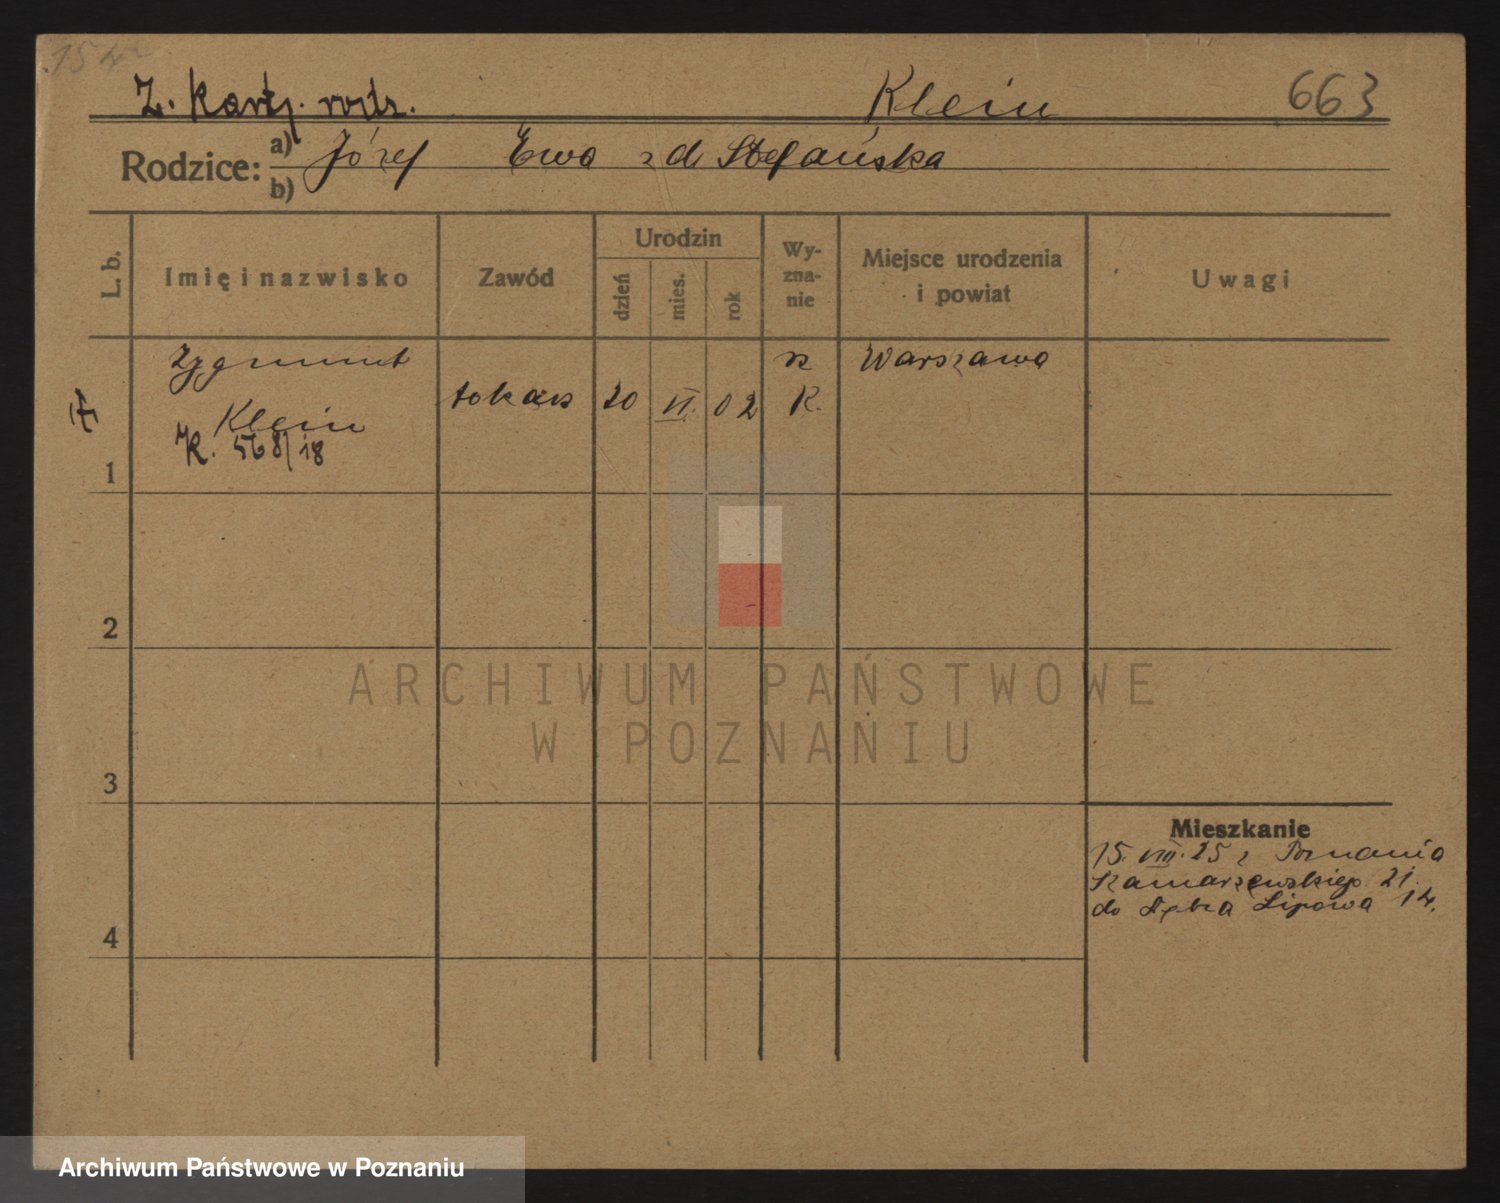 154
Z. Kartj. rodz. Klein 663
Rodzice: a) Józef Ewa zd Stefańska
b)
L. b. Imię i nazwisko Zawód Urodzin dzień mies. rok Wy-zna-nie Miejsce urodzenia i powiat Uwagi
Zygmunt rz Warszawa
Klein tokarz 20 VI. 02 K.
K. 568/18
1
2
ARCHIWUM PAŃSTWOWE
W POZNANIU
3
Mieszkanie
15. VIII. 25 z Poznania
21.
do Lipowa 14.
4
Archiwum Państwowe w Poznaniu